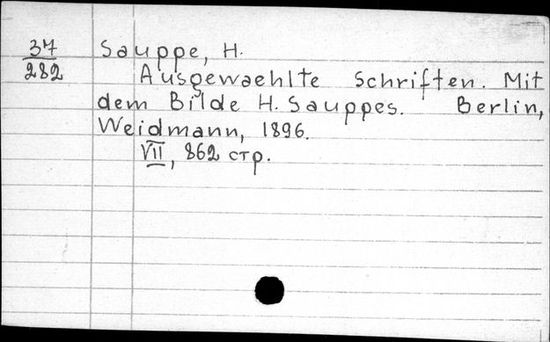 37
282
Sauppe, H.
Ausgewaehlte Schriften. Mit
dem Bilde H. Sauppes. Berlin,
Weidmann, 1896.
VII, 862 стр.